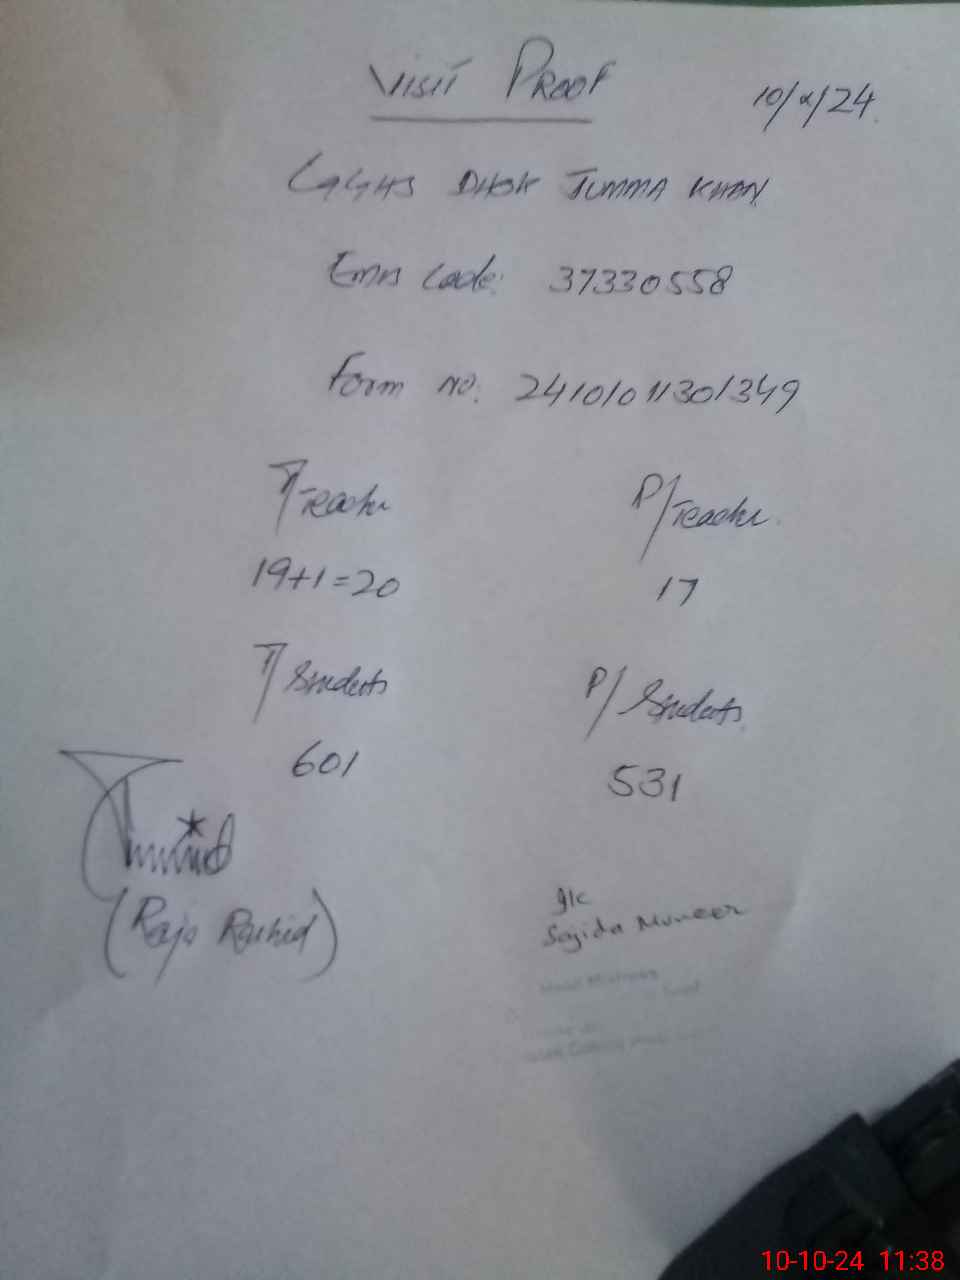 Visit Proof
10/x/24.
GGHS DHOK JUMMA KHAN
Emis Code: 37330558
Form No. 2410101301349
T/Teacher
P/Teacher
19+1=20
17
T/Students
P/Students
601
531
(Raja Rashid)
I/c
Sajida Muneer
10-10-24 11:38